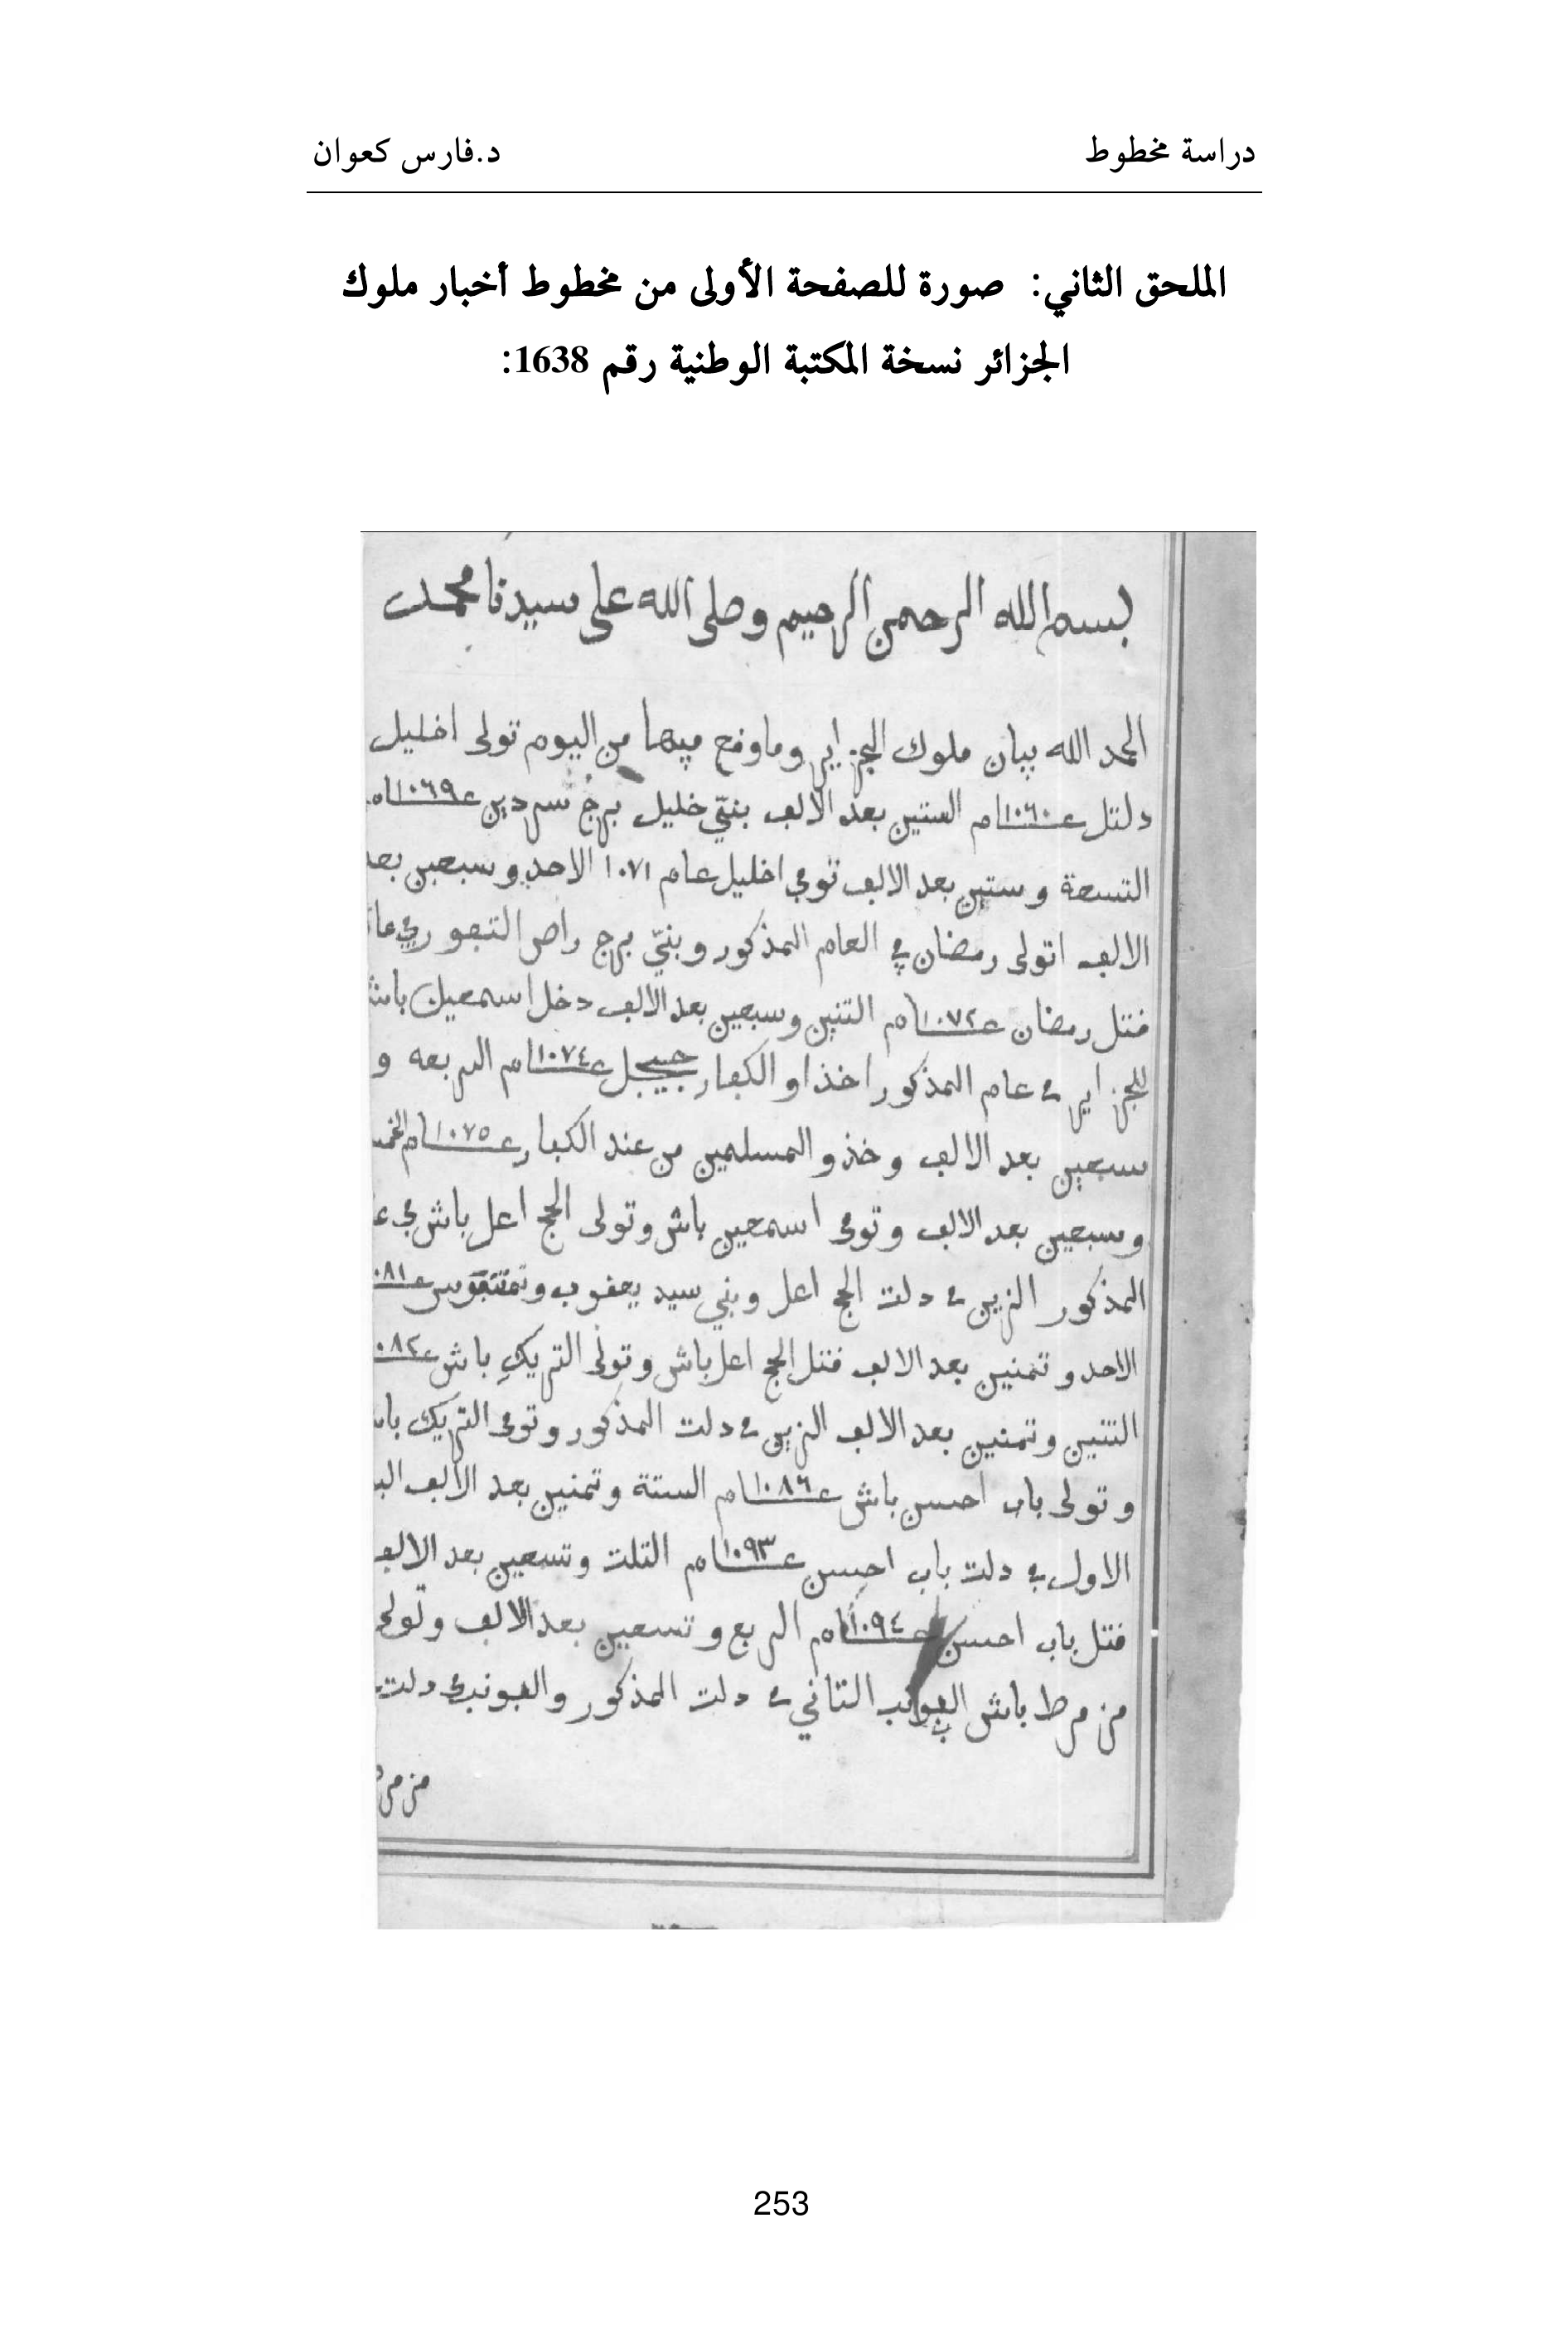 دراسة مخطوط
د.فارس كعوان
الملحق الثاني: صورة للصفحة الأولى من مخطوط أخبار ملوك
الجزائر نسخة المكتبة الوطنية رقم 1638:
بسم الله الرحمن الرحيم وصلى الله على سيدنا محمد
الحمد الله بيان ملوك الجزاير وما وقع فيها من اليوم تولى اخليل
دلتل عـ١٠٦٠ـام الستين بعد الالف بنيّ خليل برج سردين عـ١٠٦٩ـام
التسعة وستين بعد الالف توفي اخليل عام ١٠٧١ الاحد وسبعين بعد
الالف اتولى رمضان في العام المذكور وبنيّ برج راص التفوري
قتل رمضان عـ١٠٧٢ـام التنين وسبعين بعد الالف دخل اسمعيل باش
للجزاير في عام المذكور اخذاو الكفار جيجل عـ١٠٧٤ـام الربعه و
سبعين بعد الالف وخذو المسلمين من عند الكفار عـ١٠٧٥ـام
وسبعين بعد الالف وتوفى اسمعين باش وتولى الحج اعل باش في
المذكور الزين في دلت الحج اعل وبني سيد يعقوب وتمنتفوس
الاحد وتمنين بعد الالف قتل الحج اعل باش وتولى التريك باش
التنين وتمنين بعد الالف الزين في دلت المذكور وتوفى التريك
وتولى باب احسن باش عـ١٠٨٦ـام الستة وتمنين بعد الالف
الاول في دلت باب احسن عـ١٠٩٣ـام التلت وتسعين بعد الالف
قتل باب احسن عـ١٠٩٤ـام الربع وتسعين بعد الالف وتولى
مزمرط باش البونب التاني في دلت المذكور والبونب في دلت
253